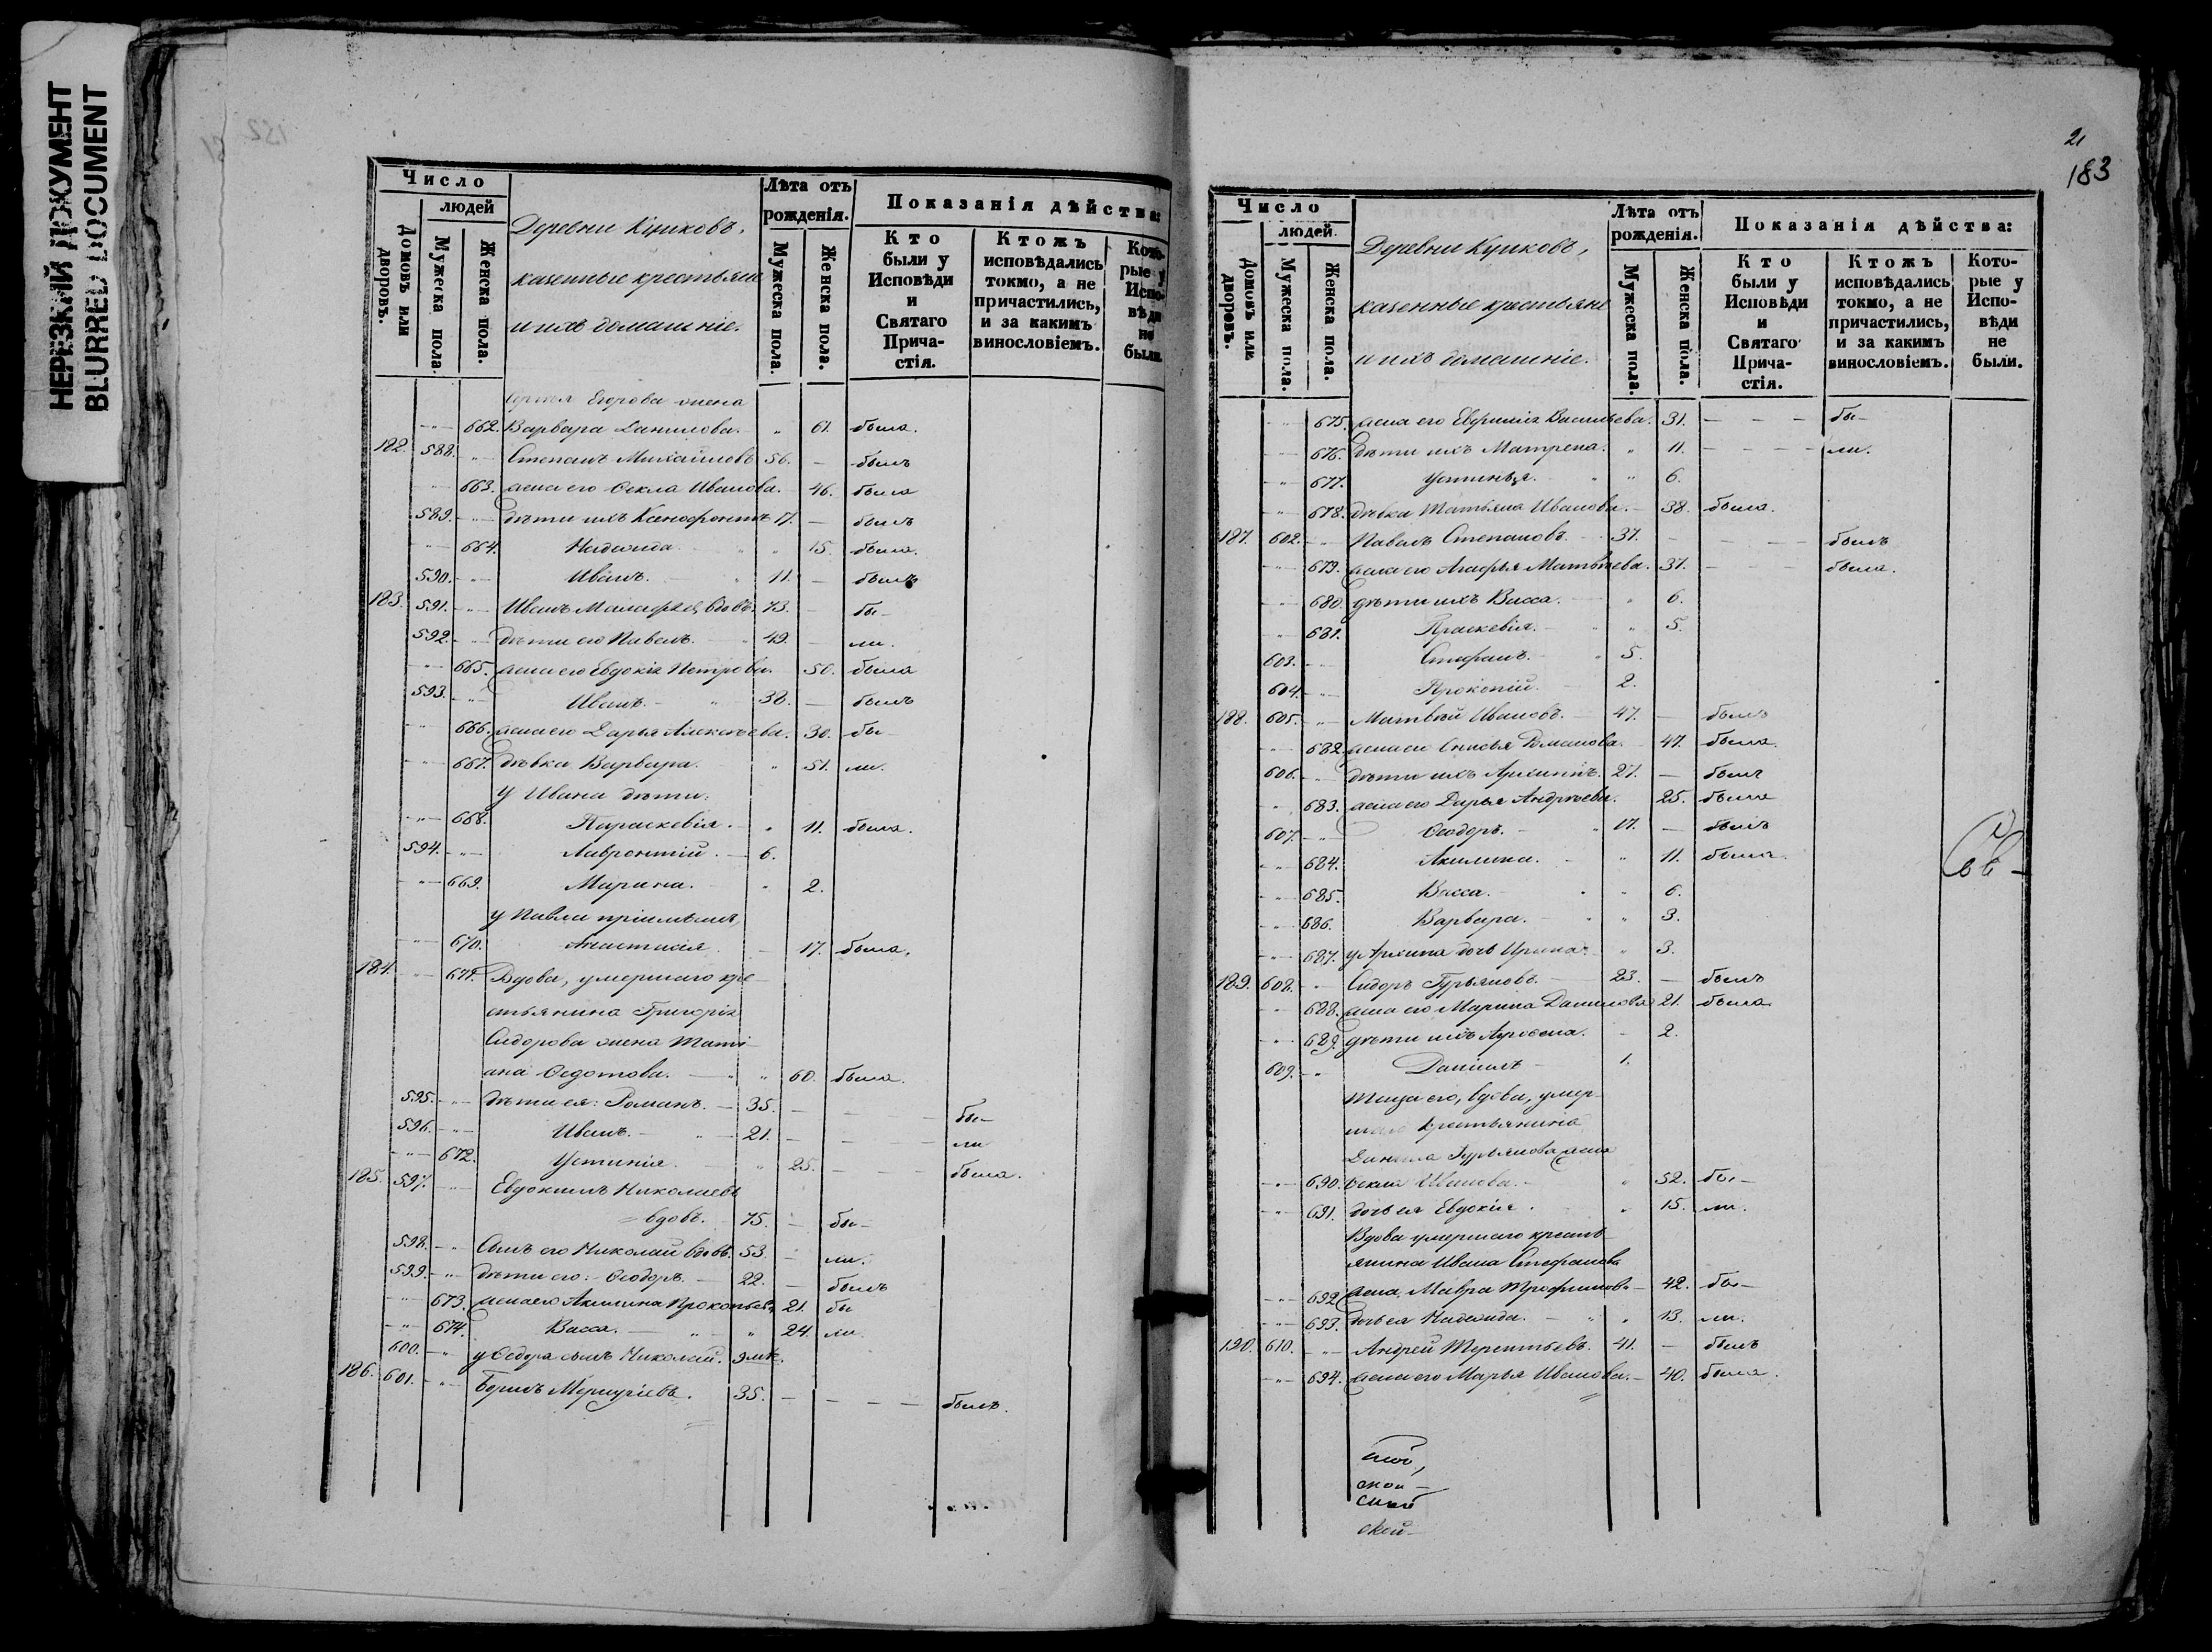 НЕРЕЗКИЙ ДОКУМЕНТ
BLURRED DOCUMENT
Число
людей
Домовъ или дворовъ.
Мужеска пола.
Женска пола.
Деревни Купковъ,
казенные крестьяне
и ихъ домашніе.
Лѣта отъ рожденія.
Мужеска пола.
Женска пола.
Показанія дѣйства:
Кто были у Исповѣди и Святаго Причастія.
Ктожъ исповѣдались токмо, а не причастились, и за какимъ винословіемъ.
Которые у Исповѣди не были.
Егорова жена
662. Варвара Данилова. „ 61. была.
182. 588. Степанъ Михайловъ 56. — былъ
663. жена его Ѳекла Иванова. 46. была
589. дѣти ихъ Ксенофонтъ 17. — былъ
664. Надежда. „ 15. была.
590. Иванъ. 11. — былъ
183. 591. Иванъ вдовъ. 73. — бы-
592. дѣти его Павелъ. 49. — ли.
665. жена его Евдокія Петрова. 50. была
593. Иванъ. 38. — былъ
666. жена его Дарья Алексѣева. 30. бы-
667. дѣвка Варвара. „ 51. ли.
У Ивана дѣти:
668. Параскевія. „ 11. была.
594. Лаврентій. 6.
669. Марина. „ 2.
у Павла пріимышъ,
670. Анастасія. — 17. была.
184. 671. Вдова, умершаго кре-
стьянина Григорія
Сидорова жена Тати-
ана Ѳедотова. „ 60. была.
595. дѣти ея: Романъ. 35. — — — бы-
596. Иванъ. 21. — — — ли
672. Устинія. „ 25. — — — была.
185. 597. Евдокимъ Николаевъ
вдовъ. 75. — бы-
598. Сынъ его Николай вдовъ. 53. — ли.
599. дѣти его: Ѳеодоръ. 22. — былъ
673. жена его Акилина Прокопьева 21. бы
674. Васса. „ 24. ли.
600. у Ѳедора сынъ Николай. 9 мѣ.
186. 601. Меркуріевъ. 35. — — — былъ.
21
183
Число
людей.
Домовъ или дворовъ.
Мужеска пола.
Женска пола.
Деревни Купковъ,
казенные крестьяне
и ихъ домашніе.
Лѣта отъ рожденія.
Мужеска пола.
Женска пола.
Показанія дѣйства:
Кто были у Исповѣди и Святаго Причастія.
Ктожъ исповѣдались токмо, а не причастились, и за какимъ винословіемъ.
Которые у Исповѣди не были.
675. жена его Евфимія Васильева. 31. — — — бы-
676. дѣти ихъ Матрена. „ 11. — — — ли.
677. Устинья. „ 6.
678. дѣвка Татьяна Иванова. 38. была.
187. 602. Павелъ Степановъ. 37. — — — былъ
679. жена его Агафья Матвѣева. 37. — — была.
680. дѣти ихъ Васса. „ 6.
681. Праскевія. „ 5.
603. Стефанъ. 5.
604. Прокопій. 2.
188. 605. Матвѣй Ивановъ. 47. — былъ
682. жена его Романова. 47. была.
606. дѣти ихъ Архиппъ. 27. — былъ
683. жена его Дарья Андреева. 25. была
607. Ѳеодоръ. 17. — былъ
684. Акилина. „ 11. была.
685. Васса. „ 6.
686. Варвара. „ 3.
687. у Архипа дочь Ирина. „ 3.
189. 608. Сидоръ Гурьяновъ. 23. — былъ
688. жена его Марина Данилова 21. была
689. дѣти ихъ — 2.
609. Даніилъ 1.
Теща его, вдова, умер-
шаго крестьянина
Данила Гурьянова жена
690. Ѳекла Иванова. „ 52. бы-
691. дочь ея Евдокія. „ 15. ли.
Вдова умершаго кресть-
янина Ивана Стефанова
692. жена, Мавра Трофимова — 42. бы-
693. дочь ея Надежда. „ 13. ли.
190. 610. Андрей Терентьевъ. 41. — былъ
694. жена его Марья Иванова. — 40. была.
ской